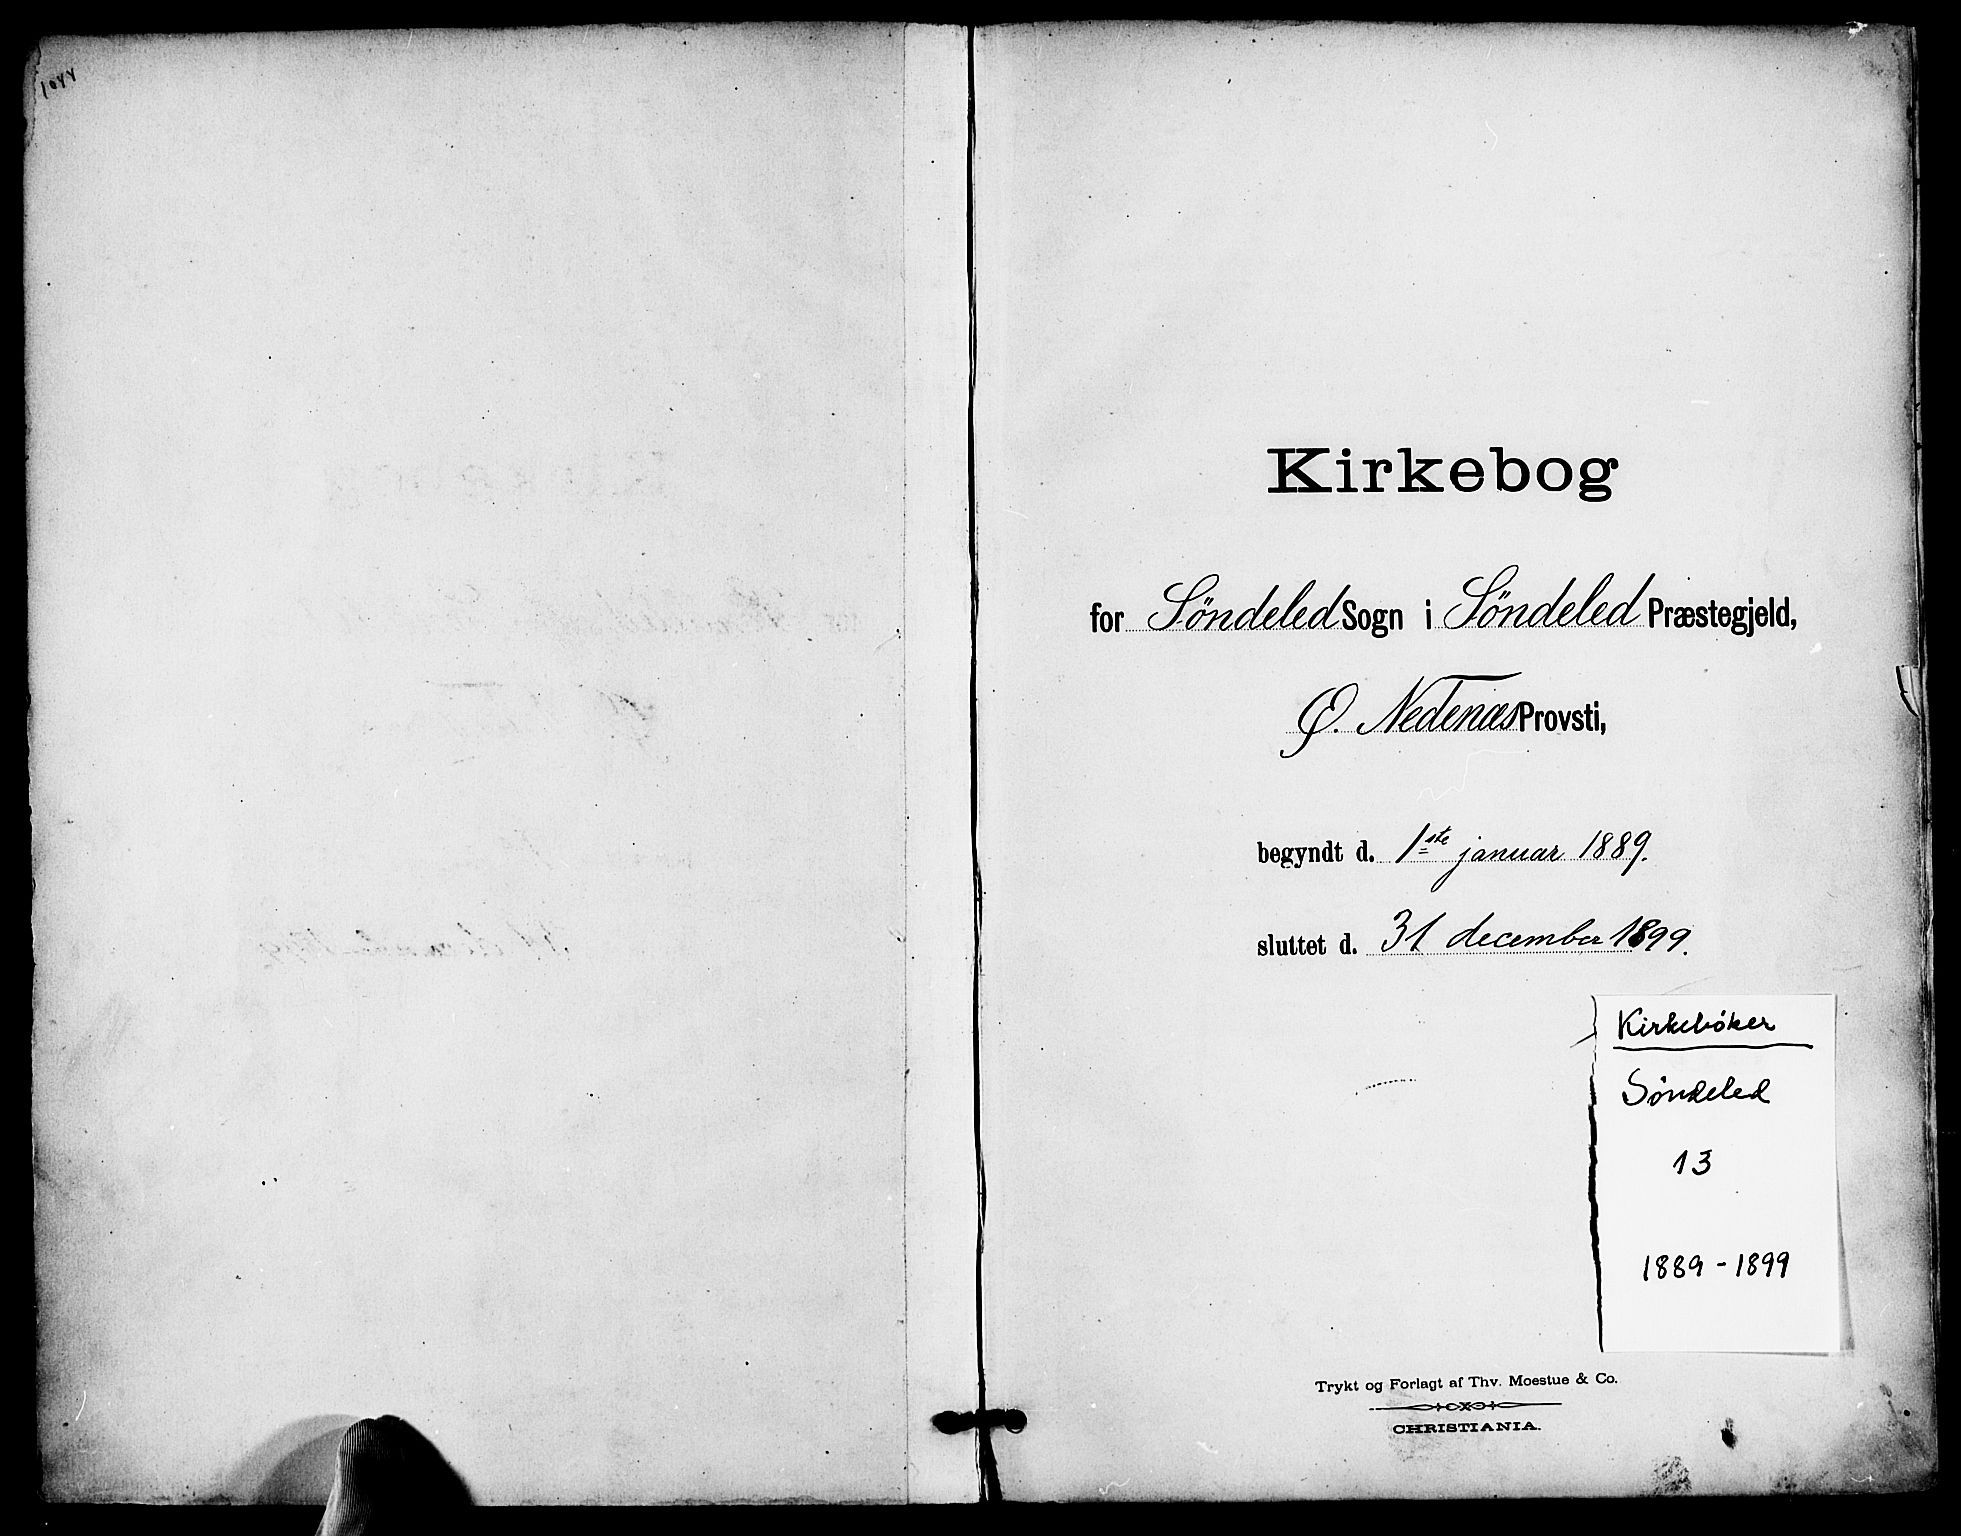 1044
Kirkebog
for Söndeled Sogn i Söndeled Præstegjeld,
Ø. Nedenæs Provsti,
begyndt d. 1ste januar 1889.
sluttet d. 31 december 1899.
Kirkebøker
Söndeled
13
1889 - 1899
Trykt og Forlagt af Thv. Moestue & Co.
CHRISTIANIA.